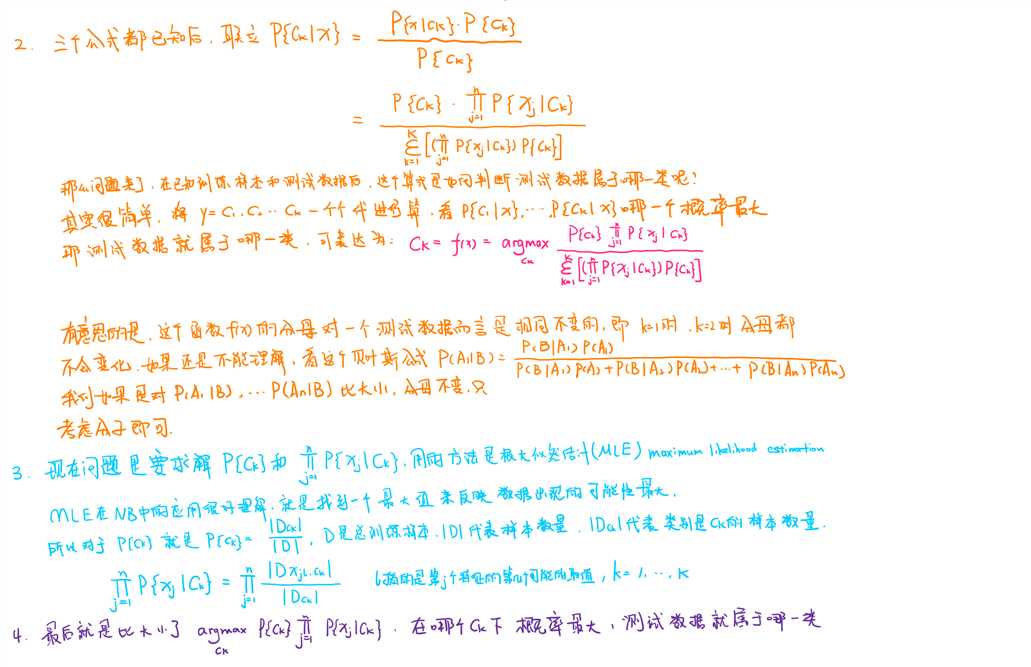 2. 三个公式都已知后，联立 P{Ck|x} = P{x|Ck}·P{Ck} / P{Ck}
= P{Ck}·∏_{j=1}^{n} P{xj|Ck} / ∑_{k=1}^{K} [(∏_{j=1}^{n} P{xj|Ck}) P{Ck}]
那么问题来了，在已知训练样本和测试数据后，这个算式是如何判断测试数据属于哪一类呢？
其实很简单，将 y = C1, C2 ... Ck 一个个代进去算，看 P{C1|x}, ... P{Ck|x} 哪一个概率最大
那测试数据就属于哪一类，可表达为： Ck = f(x) = argmax_{Ck} P{Ck} ∏_{j=1}^{n} P{xj|Ck} / ∑_{k=1}^{K} [(∏_{j=1}^{n} P{xj|Ck}) P{Ck}]
有意思的是，这个函数 f(x) 的分母对一个测试数据而言是相同不变的，即 k=1时，k=2时 分母都
不会变化，如果还是不能理解，看这个贝叶斯公式 P(A1|B) = P(B|A1) P(A1) / P(B|A1) P(A1) + P(B|A2) P(A2) + ... + P(B|An) P(An)
我们如果是对 P(A1|B), ... P(An|B) 比大小，分母不变，只
考虑分子即可.
3. 现在问题是要求解 P{Ck} 和 ∏_{j=1}^{n} P{xj|Ck}，用的方法是极大似然估计 (MLE) maximum likelihood estimation
MLE在NB中的应用很好理解，就是找到一个最大值来反映数据出现的可能性最大，
所以对于 P{Ck} 就是 P{Ck} = |Dck| / |D|，D是总训练样本，|D|代表样本数量，|Dck|代表类别是Ck的样本数量.
∏_{j=1}^{n} P{xj|Ck} = ∏_{j=1}^{n} |Dxjl,ck| / |Dck| l指的是第j个特征的第l个可能的取值，k=1, ..., K
4. 最后就是比大小了 argmax_{Ck} P{Ck} ∏_{j=1}^{n} P{xj|Ck}，在哪个Ck下概率最大，测试数据就属于哪一类